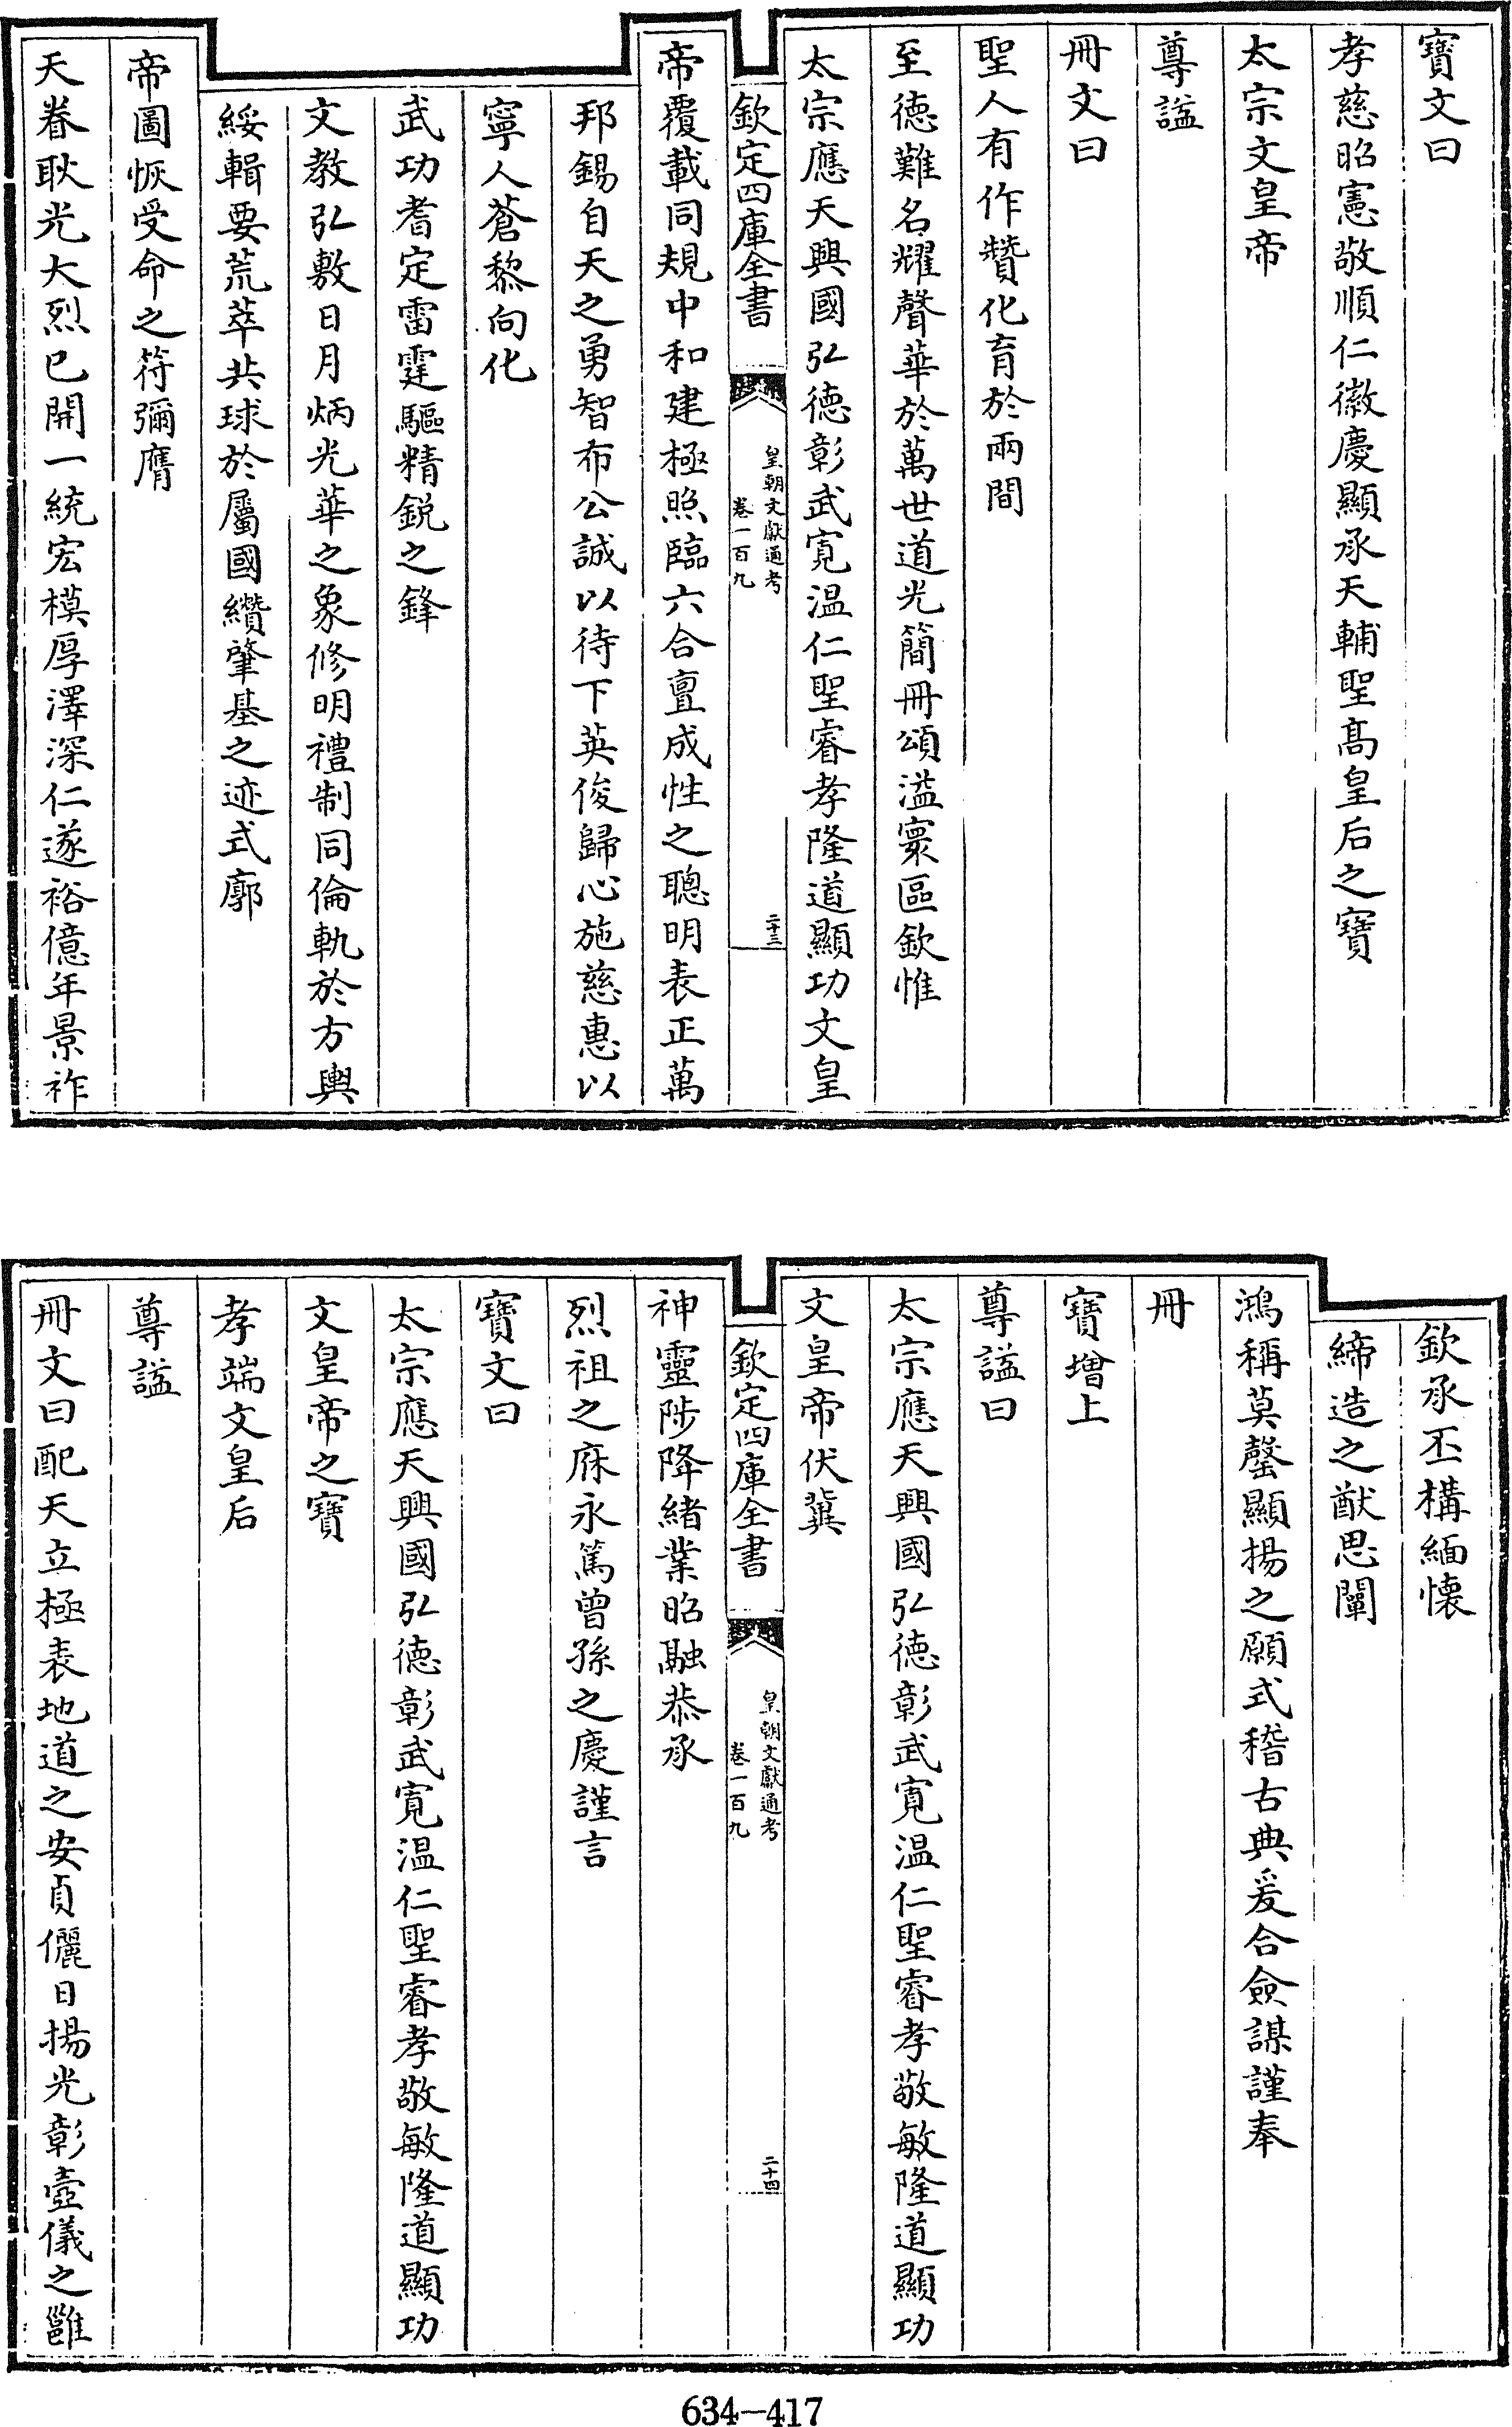 寶文曰
孝慈昭憲敬順仁徽慶顯承天輔聖髙皇后之寶
太宗文皇帝
尊諡
冊文曰
聖人有作贊化育於兩間
至德難名耀聲華於萬世道光簡冊頌溢寰區欽惟
太宗應天興國弘德彰武寛温仁聖睿孝隆道顯功文皇
欽定四庫全書
皇朝文獻通考
卷一百九
二十三
帝覆載同規中和建極照臨六合亶成性之聰明表正萬
邦錫自天之勇智布公誠以待下英俊歸心施慈惠以
寧人蒼黎向化
武功耆定雷霆驅精鋭之鋒
文教弘敷日月炳光華之象修明禮制同倫軌於方輿
綏輯要荒萃共球於屬國纘肇基之迹式廓
帝圖恢受命之符彌膺
天眷耿光大烈已開一統宏模厚澤深仁遂裕億年景祚
欽承丕構緬懐
締造之猷思闡
鴻稱莫罄顯揚之願式稽古典爰合僉謀謹奉
冊
寶增上
尊諡曰
太宗應天興國弘德彰武寛温仁聖睿孝敬敏隆道顯功
文皇帝伏冀
欽定四庫全書
皇朝文獻通考
卷一百九
二十四
神靈陟降緒業昭融恭承
烈祖之庥永篤曾孫之慶謹言
寶文曰
太宗應天興國弘德彰武寛温仁聖睿孝敬敏隆道顯功
文皇帝之寶
孝端文皇后
尊諡
冊文曰配天立極表地道之安貞儷日揚光彰壼儀之雝
634-417